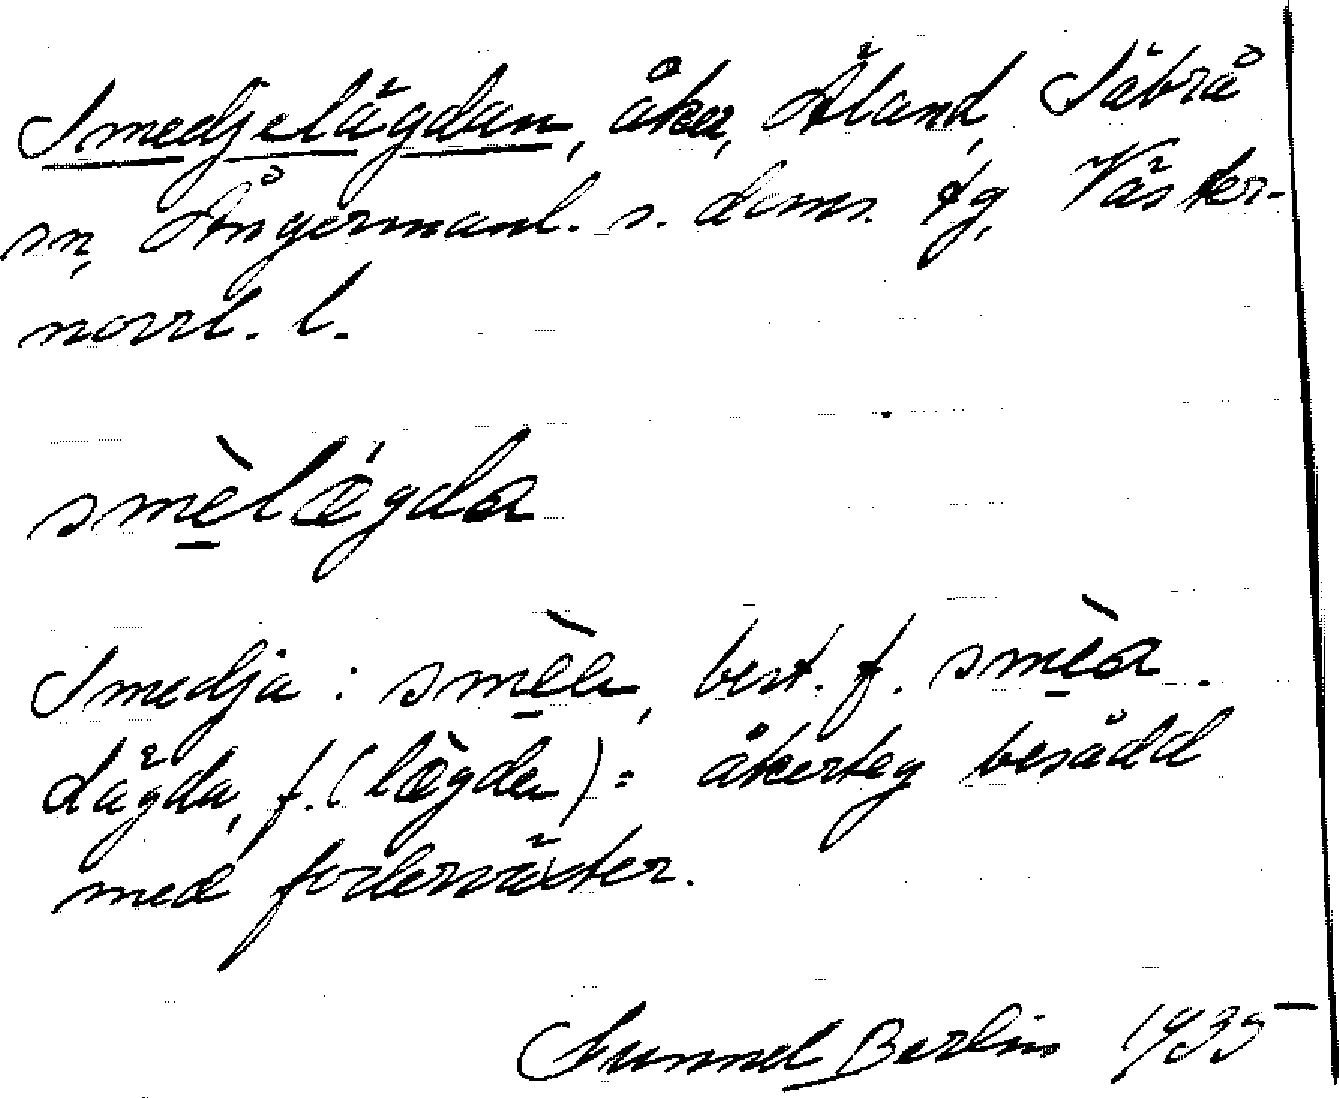 Smedjelägdan, åker, Åland, Säbrå
sn, Ångermanl. s. doms. tg, Väster-
norrl. l.
smèlǽgda
Smedja : smèe, best. f. smèa.
Lägda, f. (lægde) = åkerteg besådd
med foderväxter.
Gunnel Berlin 1935